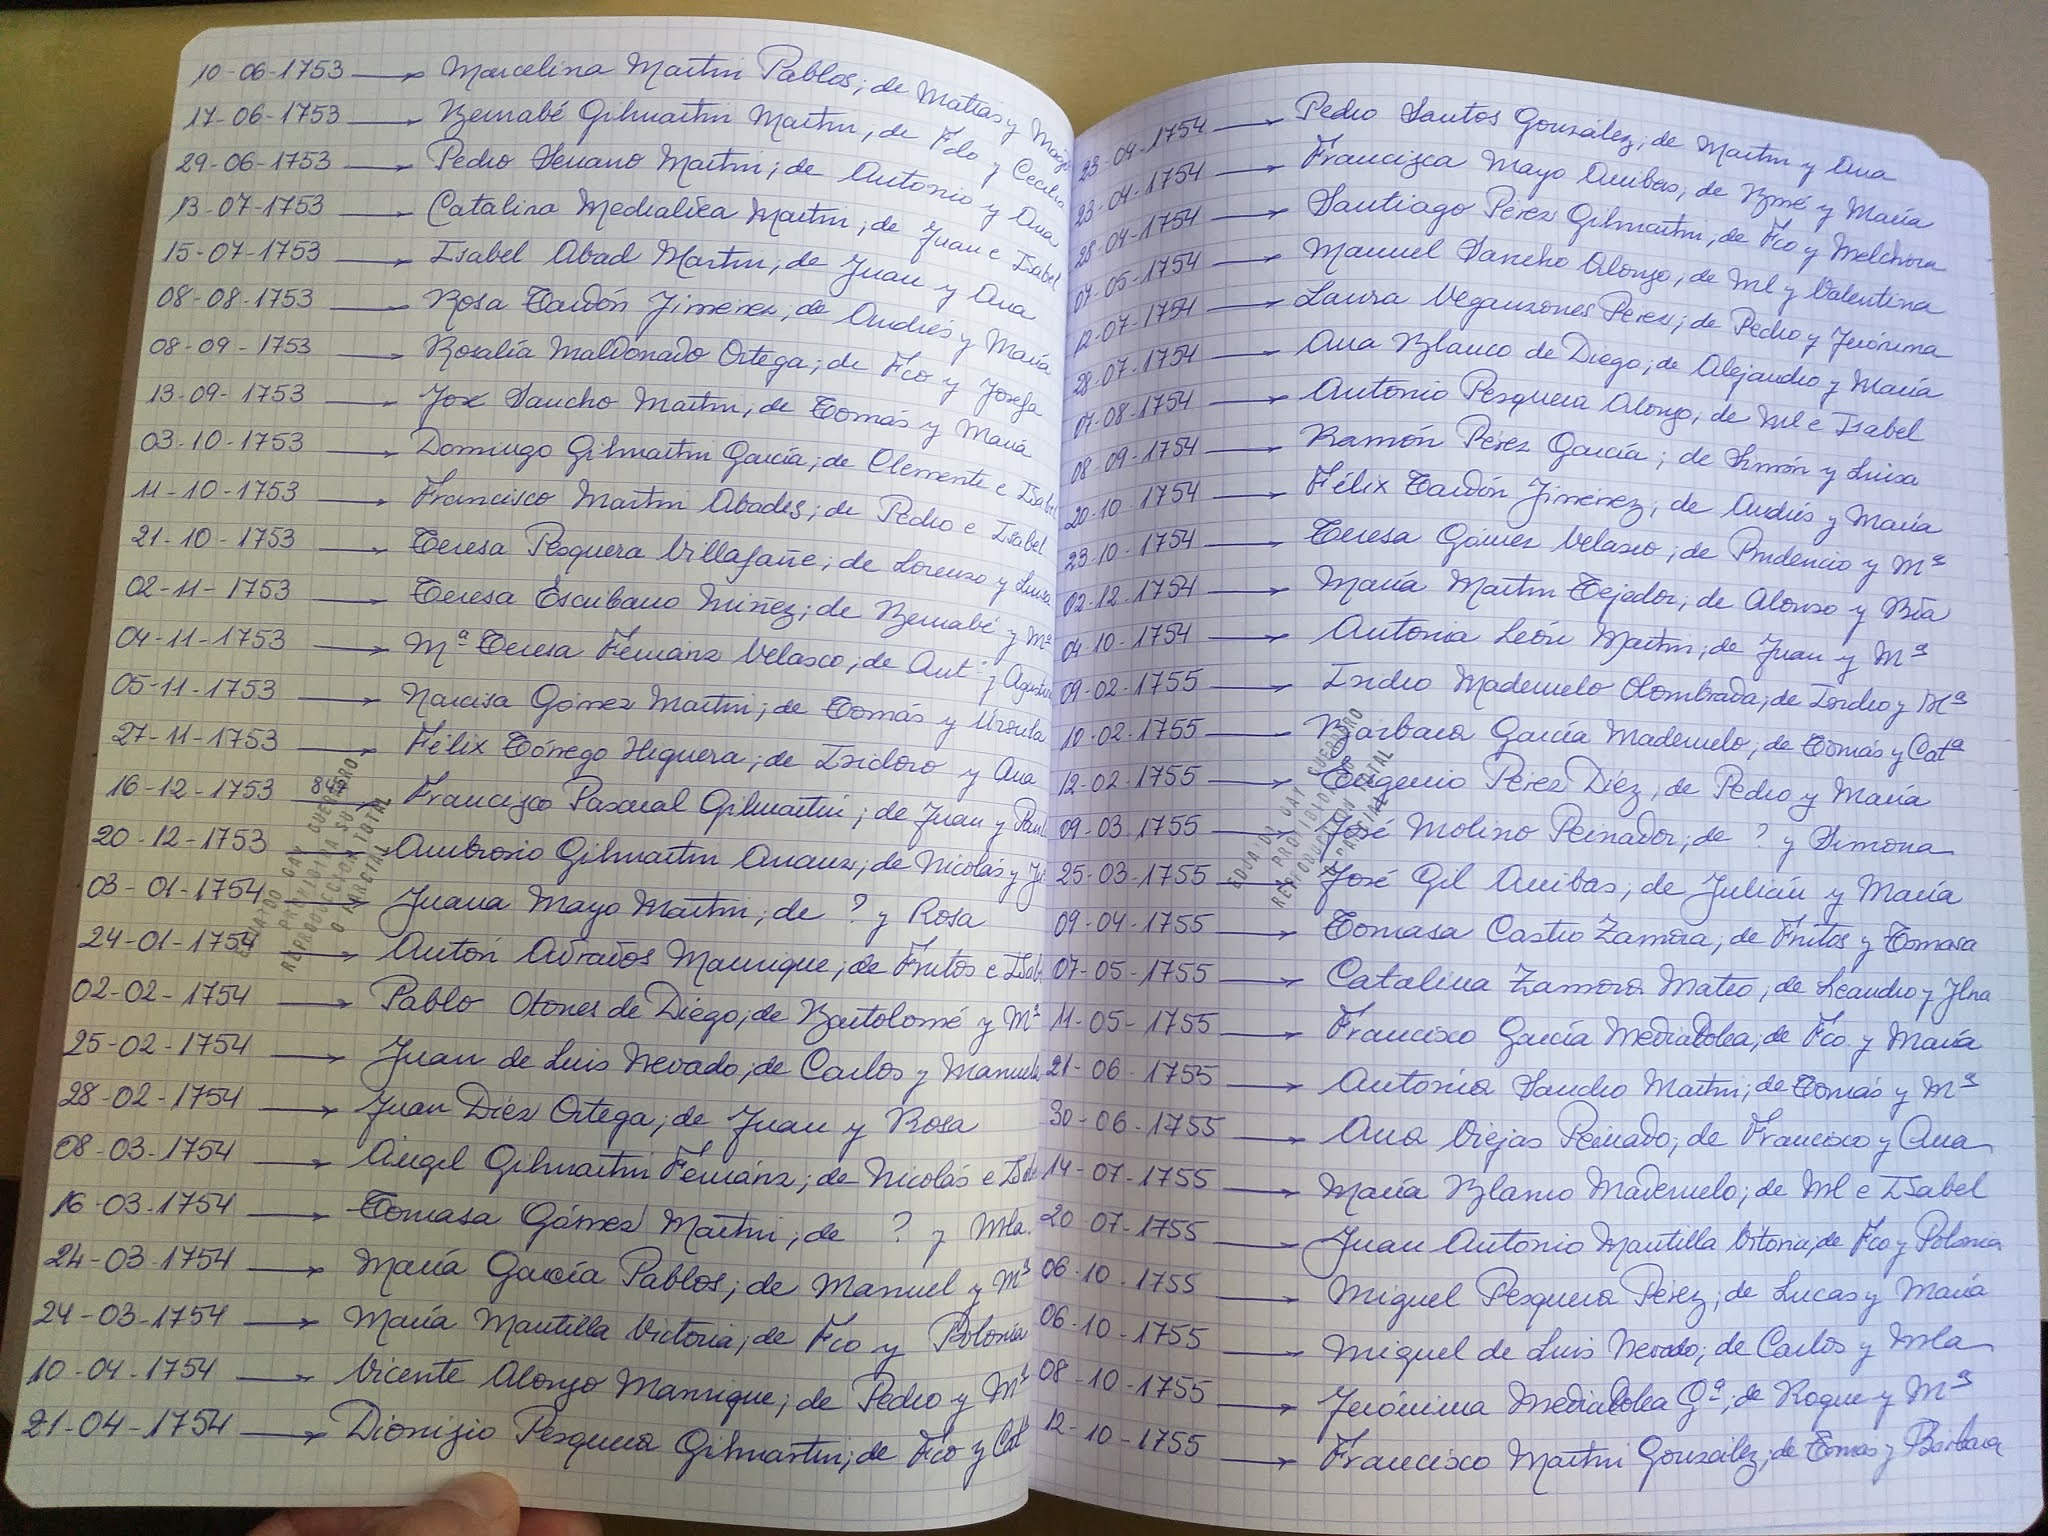 10-06-1753 → Marcelina Martín Pablos; de Matías y
17-06-1753 → Bernabé Gilmartín Martín, de Fdo y Cecilia
29-06-1753 → Pedro Serrano Martín; de Antonio y Ana
13-07-1753 → Catalina Medialdea Martín; de Juan e Isabel
15-07-1753 → Isabel Abad Martín; de Juan y Ana
08-08-1753 → Rosa Tardón Jiménez; de Andrés y María
08-09-1753 → Rosalía Maldonado Ortega; de Fco y Josefa
13-09-1753 → José Sancho Martín, de Tomás y María
03-10-1753 → Domingo Gilmartín García; de Clemente e Isabel
11-10-1753 → Francisco Martín Abades; de Pedro e Isabel
21-10-1753 → Teresa Pesquera Villafañe; de Lorenzo y Luisa
02-11-1753 → Teresa Escribano Núñez; de Bernabé y Mª
04-11-1753 → Mª Teresa Fernanz Velasco; de Antº y
05-11-1753 → Narcisa Gómez Martín; de Tomás y Úrsula
27-11-1753 → Félix Tórrego Higuera; de Isidoro y Ana
16-12-1753 → Francisco Pascual Gilmartín; de Juan y
20-12-1753 → Ambrosio Gilmartín Arranz; de Nicolás y
03-01-1754 → Juana Mayo Martín; de ? y Rosa
24-01-1754 → Antón Adrados Manrique; de Frutos e Isab
02-02-1754 → Pablo Otones de Diego, de Bartolomé y Mª
25-02-1754 → Juan de Luis Nevado; de Carlos y Manuela
28-02-1754 → Juan Díez Ortega; de Juan y Rosa
08-03-1754 → Ángel Gilmartín Fernánz; de Nicolás e
16-03-1754 → Tomasa Gómez Martín; de ? y Mla.
24-03-1754 → María García Pablos; de Manuel y Mª
24-03-1754 → María Mantilla Victoria; de Fco y Polonia
10-04-1754 → Vicente Alonzo Manrique; de Pedro y Mª
21-04-1754 → Dionizio Pesquera Gilmartín; de Fco y Catª
EDUARDO GAY GUERRERO
PROHIBIDA SU
REPRODUCCION TOTAL
O PARCIAL
23-04-1754 → Pedro Santos González; de Martín y Ana
23-04-1754 → Francizca Mayo Arribas, de Bmé y María
28-04-1754 → Santiago Pérez Gilmartín, de Fco y Melchora
07-05-1754 → Manuel Sancho Alonzo, de Ml y Valentina
12-07-1754 → Laura Veganzones Pérez; de Pedro y Jerónima
28-07-1754 → Ana Blanco de Diego; de Alejandro y María
07-08-1754 → Antonio Pesquera Alonzo, de Ml e Isabel
08-09-1754 → Ramón Pérez García; de Simón y Luisa
20-10-1754 → Félix Tardón Jiménez; de Andrés y María
23-10-1754 → Teresa Gómez Velasco, de Prudencio y Mª
02-12-1754 → María Martín Tejedor; de Alonso y Bía
04-10-1754 → Antonia León Martín; de Juan y Mª
09-02-1755 → Isidro Maderuelo Olombrada; de Isidro y Mª
10-02-1755 → Bárbara García Maderuelo, de Tomás y Catª
12-02-1755 → Eugenio Pérez Díez, de Pedro y María
09-03-1755 → José Molino Peinador; de ? y Simona
25-03-1755 → José Gil Arribas, de Julián y María
09-04-1755 → Tomasa Castro Zamora, de Frutos y Tomasa
07-05-1755 → Catalina Zamora Mateo, de Leandro y Jlna
11-05-1755 → Francisco García Medialdea; de Fco. y María
21-06-1755 → Antonia Sancho Martín; de Tomás y Mª
30-06-1755 → Ana Viejas Peinado; de Francisco y Ana
14-07-1755 → María Blanco Maderuelo; de Ml e Isabel
20-07-1755 → Juan Antonio Mantilla Vitoria; de Fco y Polonia
06-10-1755 → Miguel Pesquera Pérez; de Lucas y María
06-10-1755 → Miguel de Luis Nevado; de Carlos y Mla
08-10-1755 → Jerónima Medialdea Gª; de Roque y Mª
12-10-1755 → Francisco Martín González, de Tomás y Bárbara
EDUARDO GAY GUERRERO
PROHIBIDA SU
REPRODUCCION TOTAL
O PARCIAL